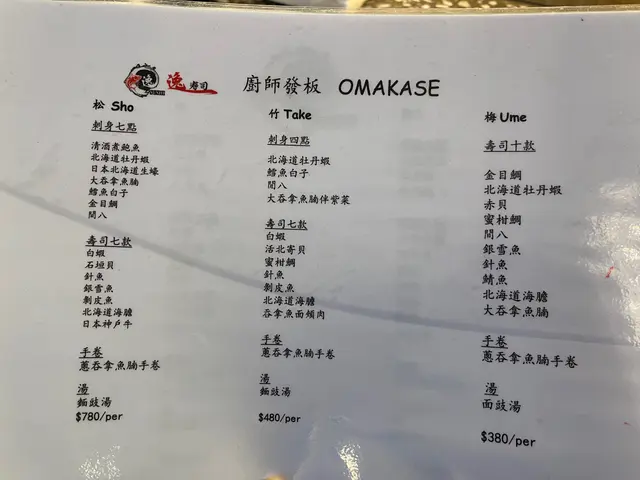 逸寿司
廚師發板 OMAKASE
松 Sho
刺身七點
清酒煮鮑魚
北海道牡丹蝦
日本北海道生蠔
大吞拿魚腩
鱈魚白子
金目鯛
間八
壽司七款
白蝦
石垣貝
針魚
銀雪魚
剝皮魚
北海道海膽
日本神戶牛
手卷
蔥吞拿魚腩手卷
湯
麵豉湯
$780/per
竹 Take
刺身四點
北海道牡丹蝦
鱈魚白子
間八
大吞拿魚腩伴紫菜
壽司七款
白蝦
活北寄貝
蜜柑鯛
針魚
剝皮魚
北海道海膽
吞拿魚面頰肉
手卷
蔥吞拿魚腩手卷
湯
麵豉湯
$480/per
梅 Ume
壽司十款
金目鯛
北海道牡丹蝦
赤貝
蜜柑鯛
間八
銀雪魚
針魚
鯖魚
北海道海膽
大吞拿魚腩
手卷
蔥吞拿魚腩手卷
湯
面豉湯
$380/per